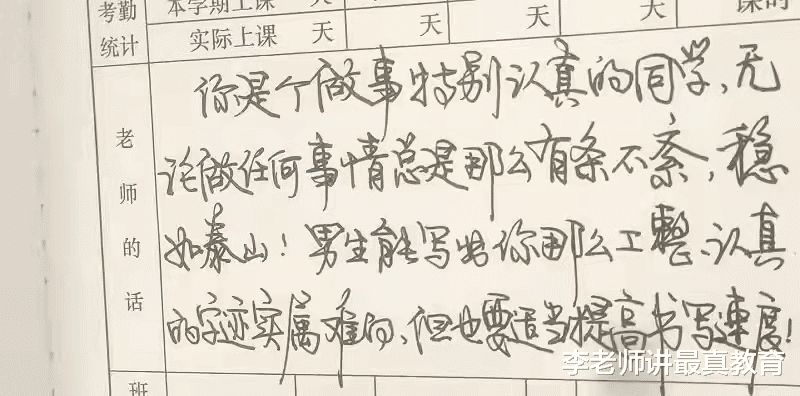 考勤统计
本学期上课 天 天 天 天 课时
实际上课 天 天 天 天
老师的话
你是个做事特别认真的同学、无
论做任何事情总是那么有条不紊，稳
如泰山！男生能写出你那么工整、认真
的字迹实属难的、但也要适当提高书写速度！
班
李老师讲最真教育